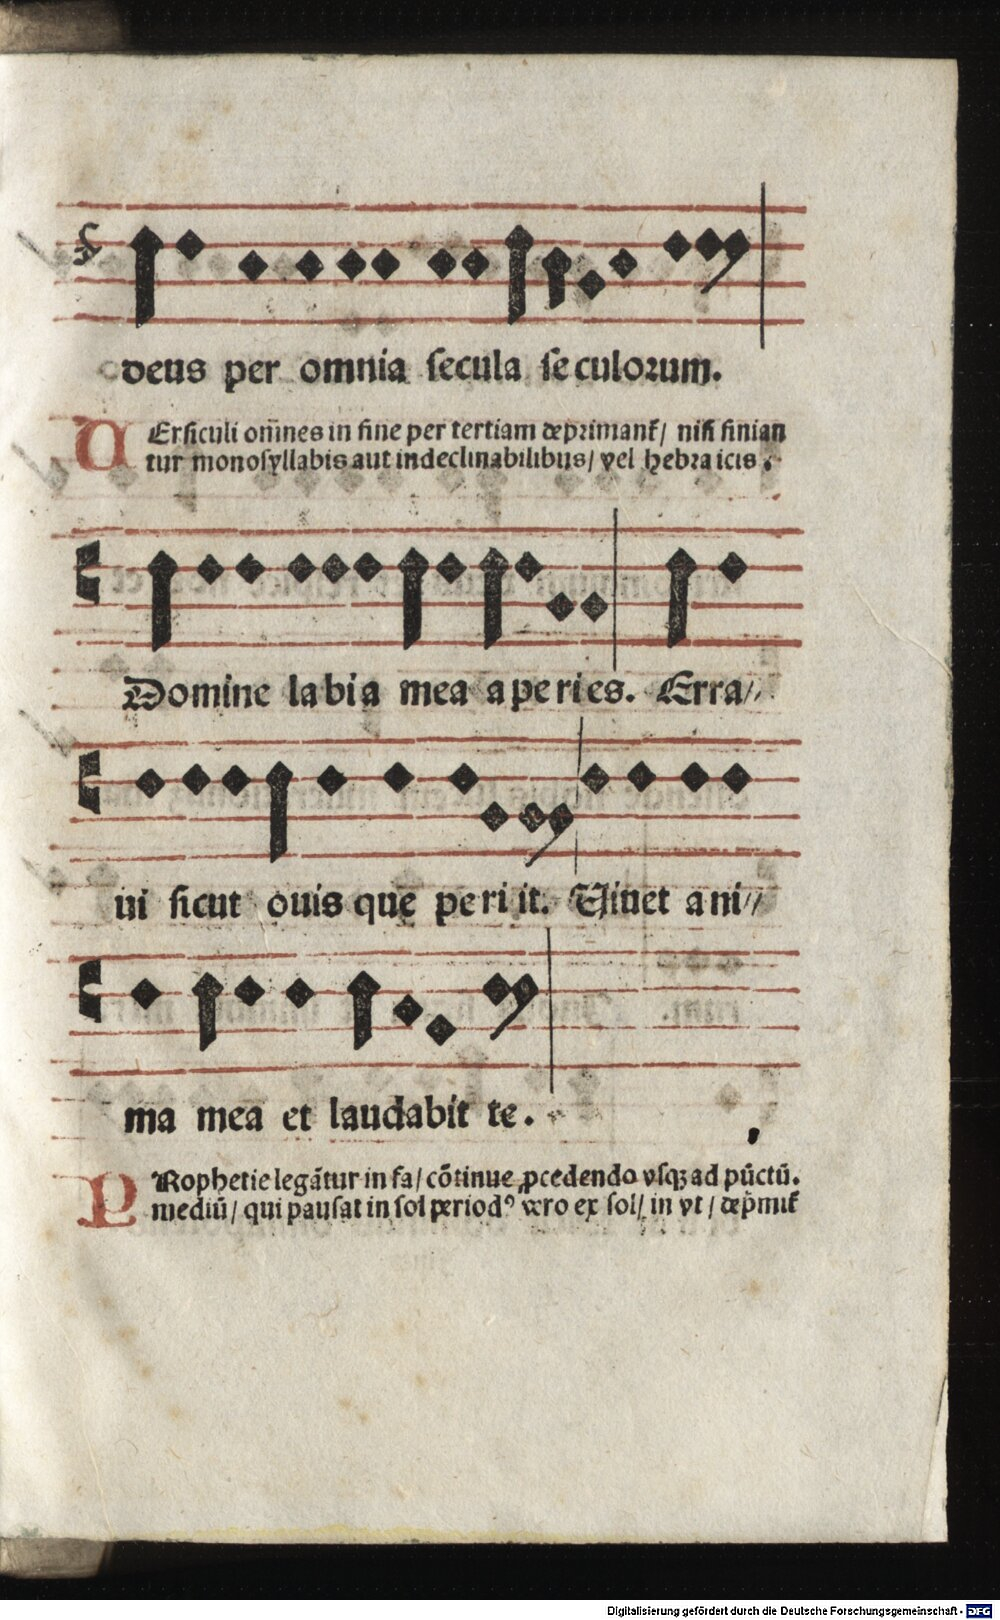 deus per omnia secula se culorum.
VErsiculi om̄nes in fine per tertiam deprimant᷑/ nisi finian
tur monosyllabis aut indeclinabilibus/ vel hebraicis.
Domine labia mea aperies. Erra//
ui sicut ouis que periit. Viuet ani//
ma mea et laudabit te.
PRophetie legātur in fa/ cōtinue ꝓcedendo vsqꝫ ad pūctū.
mediū/ qui pausat in sol periodꝰ vero ex sol/ in vt/ dep̄mit᷑
Digitalisierung gefördert durch die Deutsche Forschungsgemeinschaft - DFG